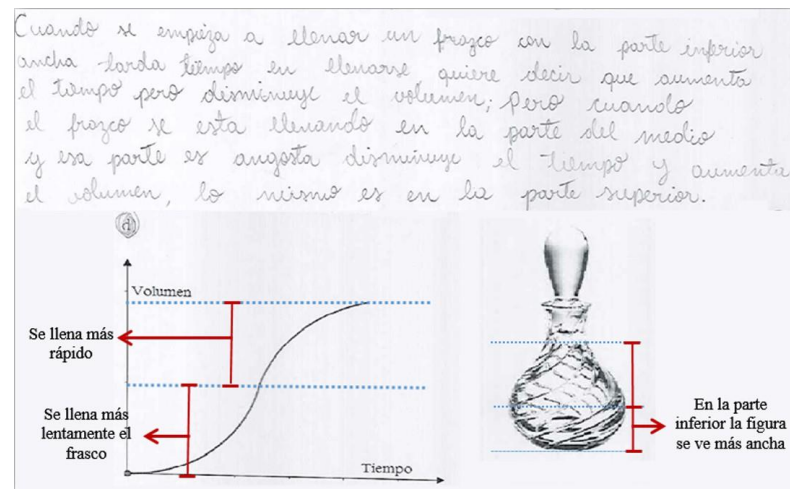 Cuando se empieza a llenar un frazco con la parte inferior
ancha tarda tiempo en llenarse quiere decir que aumenta
el tiempo pero disminuye el volumen; Pero cuando
el frazco se esta llenando en la parte del medio
y esa parte es angosta disminuye el tiempo y aumenta
el volumen, lo mismo es en la parte superior.
d)
Volumen
Se llena más
rápido
Se llena más
lentamente el
frasco
Tiempo
En la parte
inferior la figura
se ve más ancha